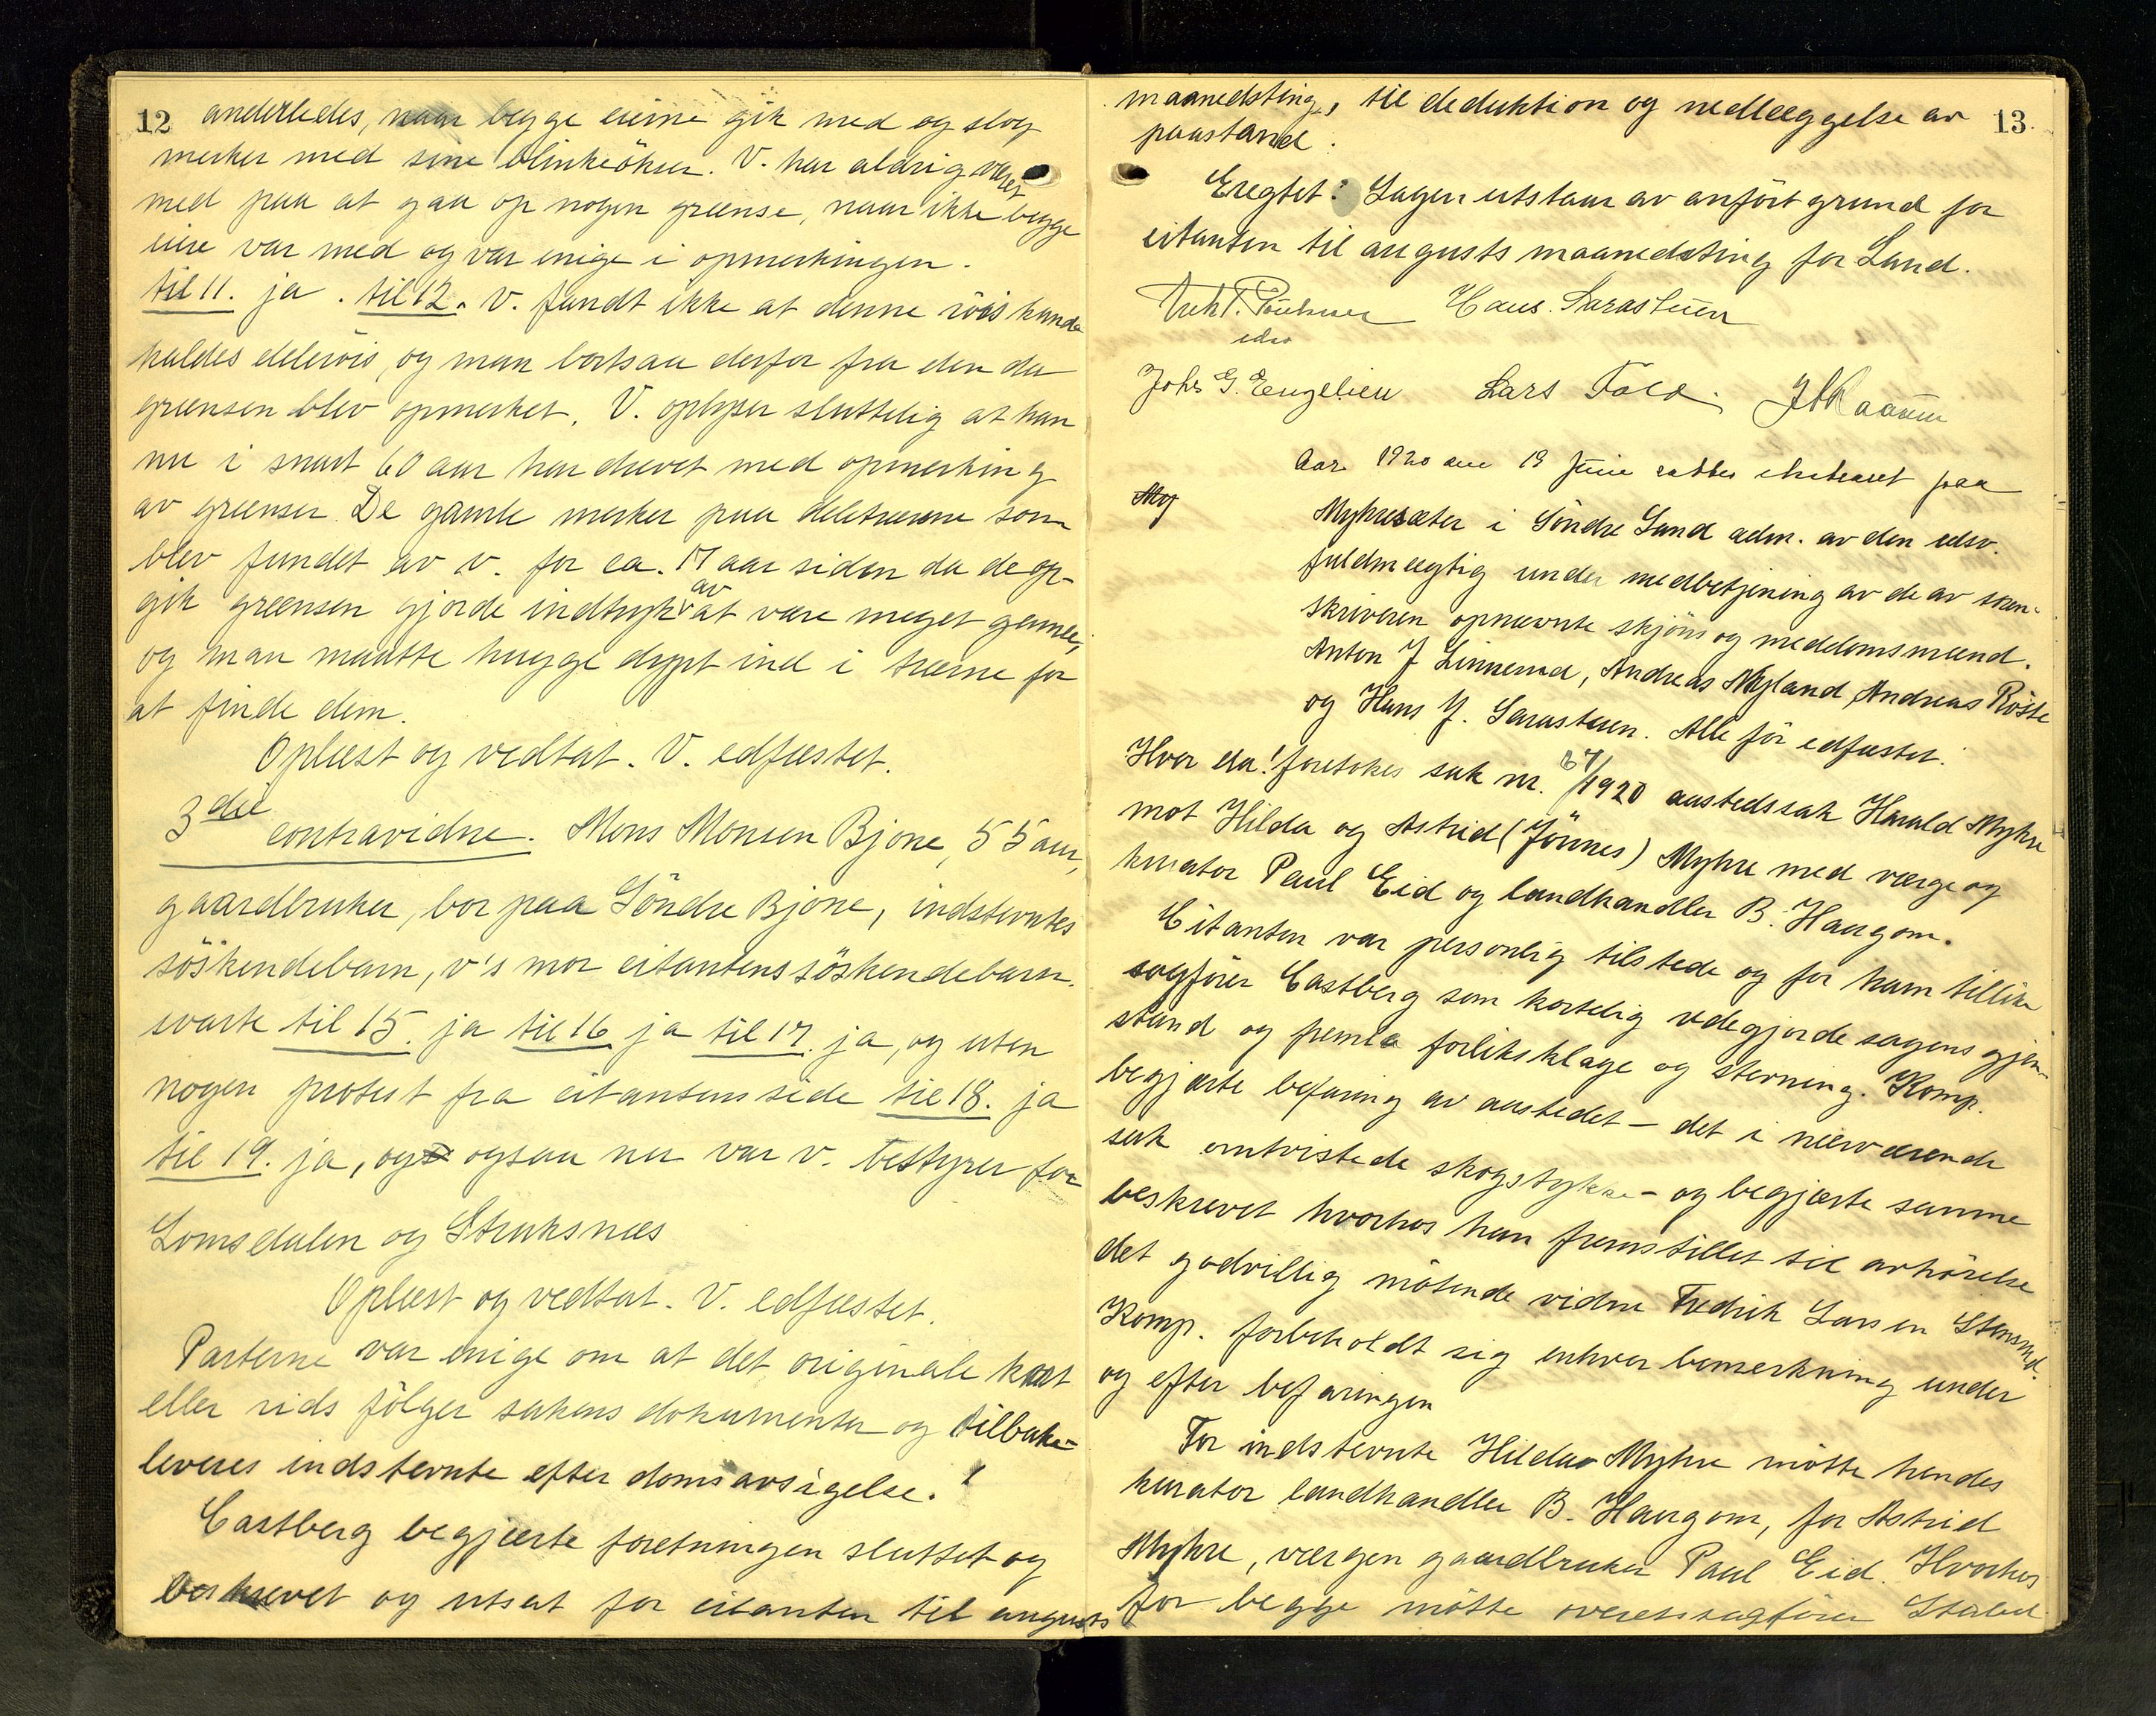 12
anderledes, naar begge eierne gik med og slog
merker med sine blinkeökser. V. har aldrig været
med paa at gaa op nogen grænse, naar ikke begge
eiere var med og var enige i opmerkingen.
til 11. ja. til 12. V. fandt ikke at denne röis kunde
kaldes deleröis, og man bortsaa derfor fra den da
grænsen blev opmerket. V. oplyser sluttelig at han
nu i snart 60 aar har drevet med opmerking
av grænser. De gamle merker paa deletrærne som
blev fundet av v. for ca. 17 aar siden da de op-
gik grænsen gjorde indtryk av at være meget gamle,
og man maatte hugge dypt ind i trærne for
at finde dem.
Oplæst og vedtat. V. edfæstet.
3die contravidne. Mons Monsen Bjone, 55 aar,
gaardbruker, bor paa Söndre Bjone, indstevntes
söskendebarn, v's mor citantens söskendebarn.
svarte til 15. ja til 16 ja til 17. ja, og uten
nogen protest fra citantens side til 18. ja
til 19. ja, og ogsaa nu var v. bestyrer for
Lomsdalen og Struksnæs
Oplæst og vedtat. V. edfæstet.
Parterne var enige om at det originale kart
eller rids fölger sakens dokumenter og tilbake-
leveres indstevnte efter domsavsigelse.
Castberg begjærte forretningen sluttet og
beskrevet og utsat for citanten til augusts
13.
maanedsting, til deduktion og nedlæggelse av
paastand.
Eragtet: Sagen utstaar av anfört grund for
citanten til augusts maanedsting for Land.
Hans. Sarastuen
edsv
Johs G. Engelien Lars Fold.
Aar 1920 den 19 juni sattes ekstraret paa
My
Myhresæter i Söndre Land adm. av den edsv.
fuldmægtig under medbetjening av de av soren-
skriveren opnævnte skjöns og meddomsmænd.
Anton J Linnerud, Andreas Nyland, Andreas Röste
og Hans J. Sarastuen. Alle för edfæstet.
Hvor da! foretokes sak nr. 67/1920 aastedssak Harald Myhre
mot Hilda og Astrid (Jönnes) Myhre med verge og
kurator Paul Eid og landhandler B. Haugom.
Citanten var personlig tilstede og for ham tillike
sagförer Castberg som kortelig redegjorde sagens gjen-
stand og fremla forliksklage og stevning. Komp.
begjærte befaring av aastedet – det i nærværende
sak omtvistede skogstykke – og begjærte samme
beskrevet hvorhos han fremstillet til avhörelse
det godvillig mötende vidne Fredrik Larsen Stensrud.
Komp. forbeholdt sig enhver bemerkning under
og efter befaringen
For indstevnte Hilda Myhre mötte hendes
kurator landhandler B. Haugom, for Astrid
Myhre, vergen gaardbruker Paul Eid. Hvorhos
for begge mötte overretssagförer